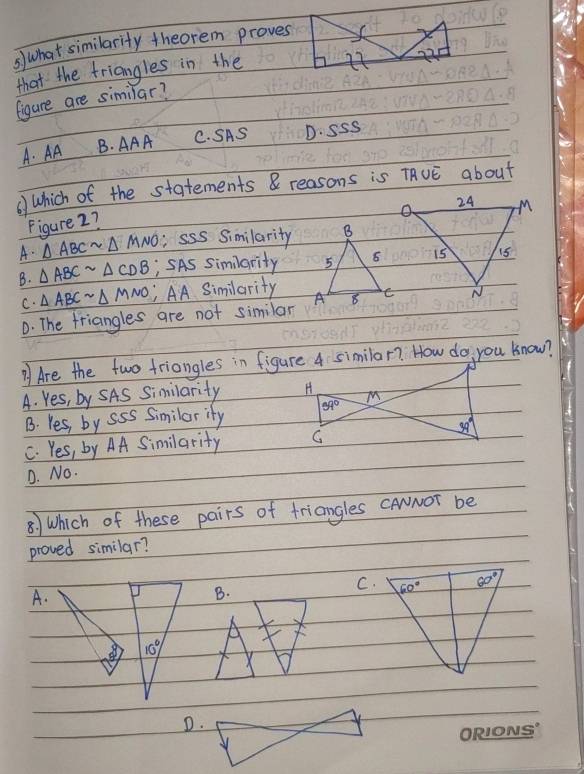 5) What similarity theorem proves
that the triangles in the
figure are similar?
A. AA B. AAA C. SAS D. SSS
6) Which of the statements & reasons is TRUE about
Figure 2?
A. Δ ABC ~ Δ MNO; SSS Similarity
B. Δ ABC ~ Δ CDB; SAS Similarity
C. Δ ABC ~ Δ MNO; AA Similarity
D. The triangles are not similar
B
5 5
A 8 C
O 24 M
15 15
N
7) Are the two triangles in figure 4 similar? How do you know?
A. Yes, by SAS Similarity
B. Yes, by SSS Similarity
C. Yes, by AA Similarity
D. No.
H
39° M
G
39°
8.) Which of these pairs of triangles CANNOT be
proved similar?
A. B. C.
10°
60° 60°
D.
ORIONS